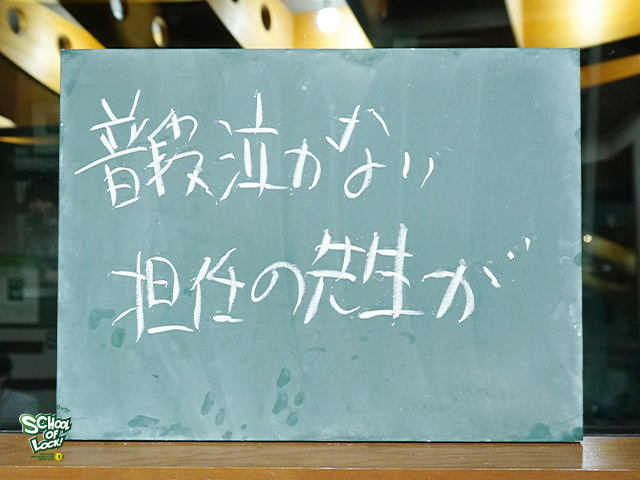 普段泣かない
担任の先生が
SCHOOL
OF
LOCK!